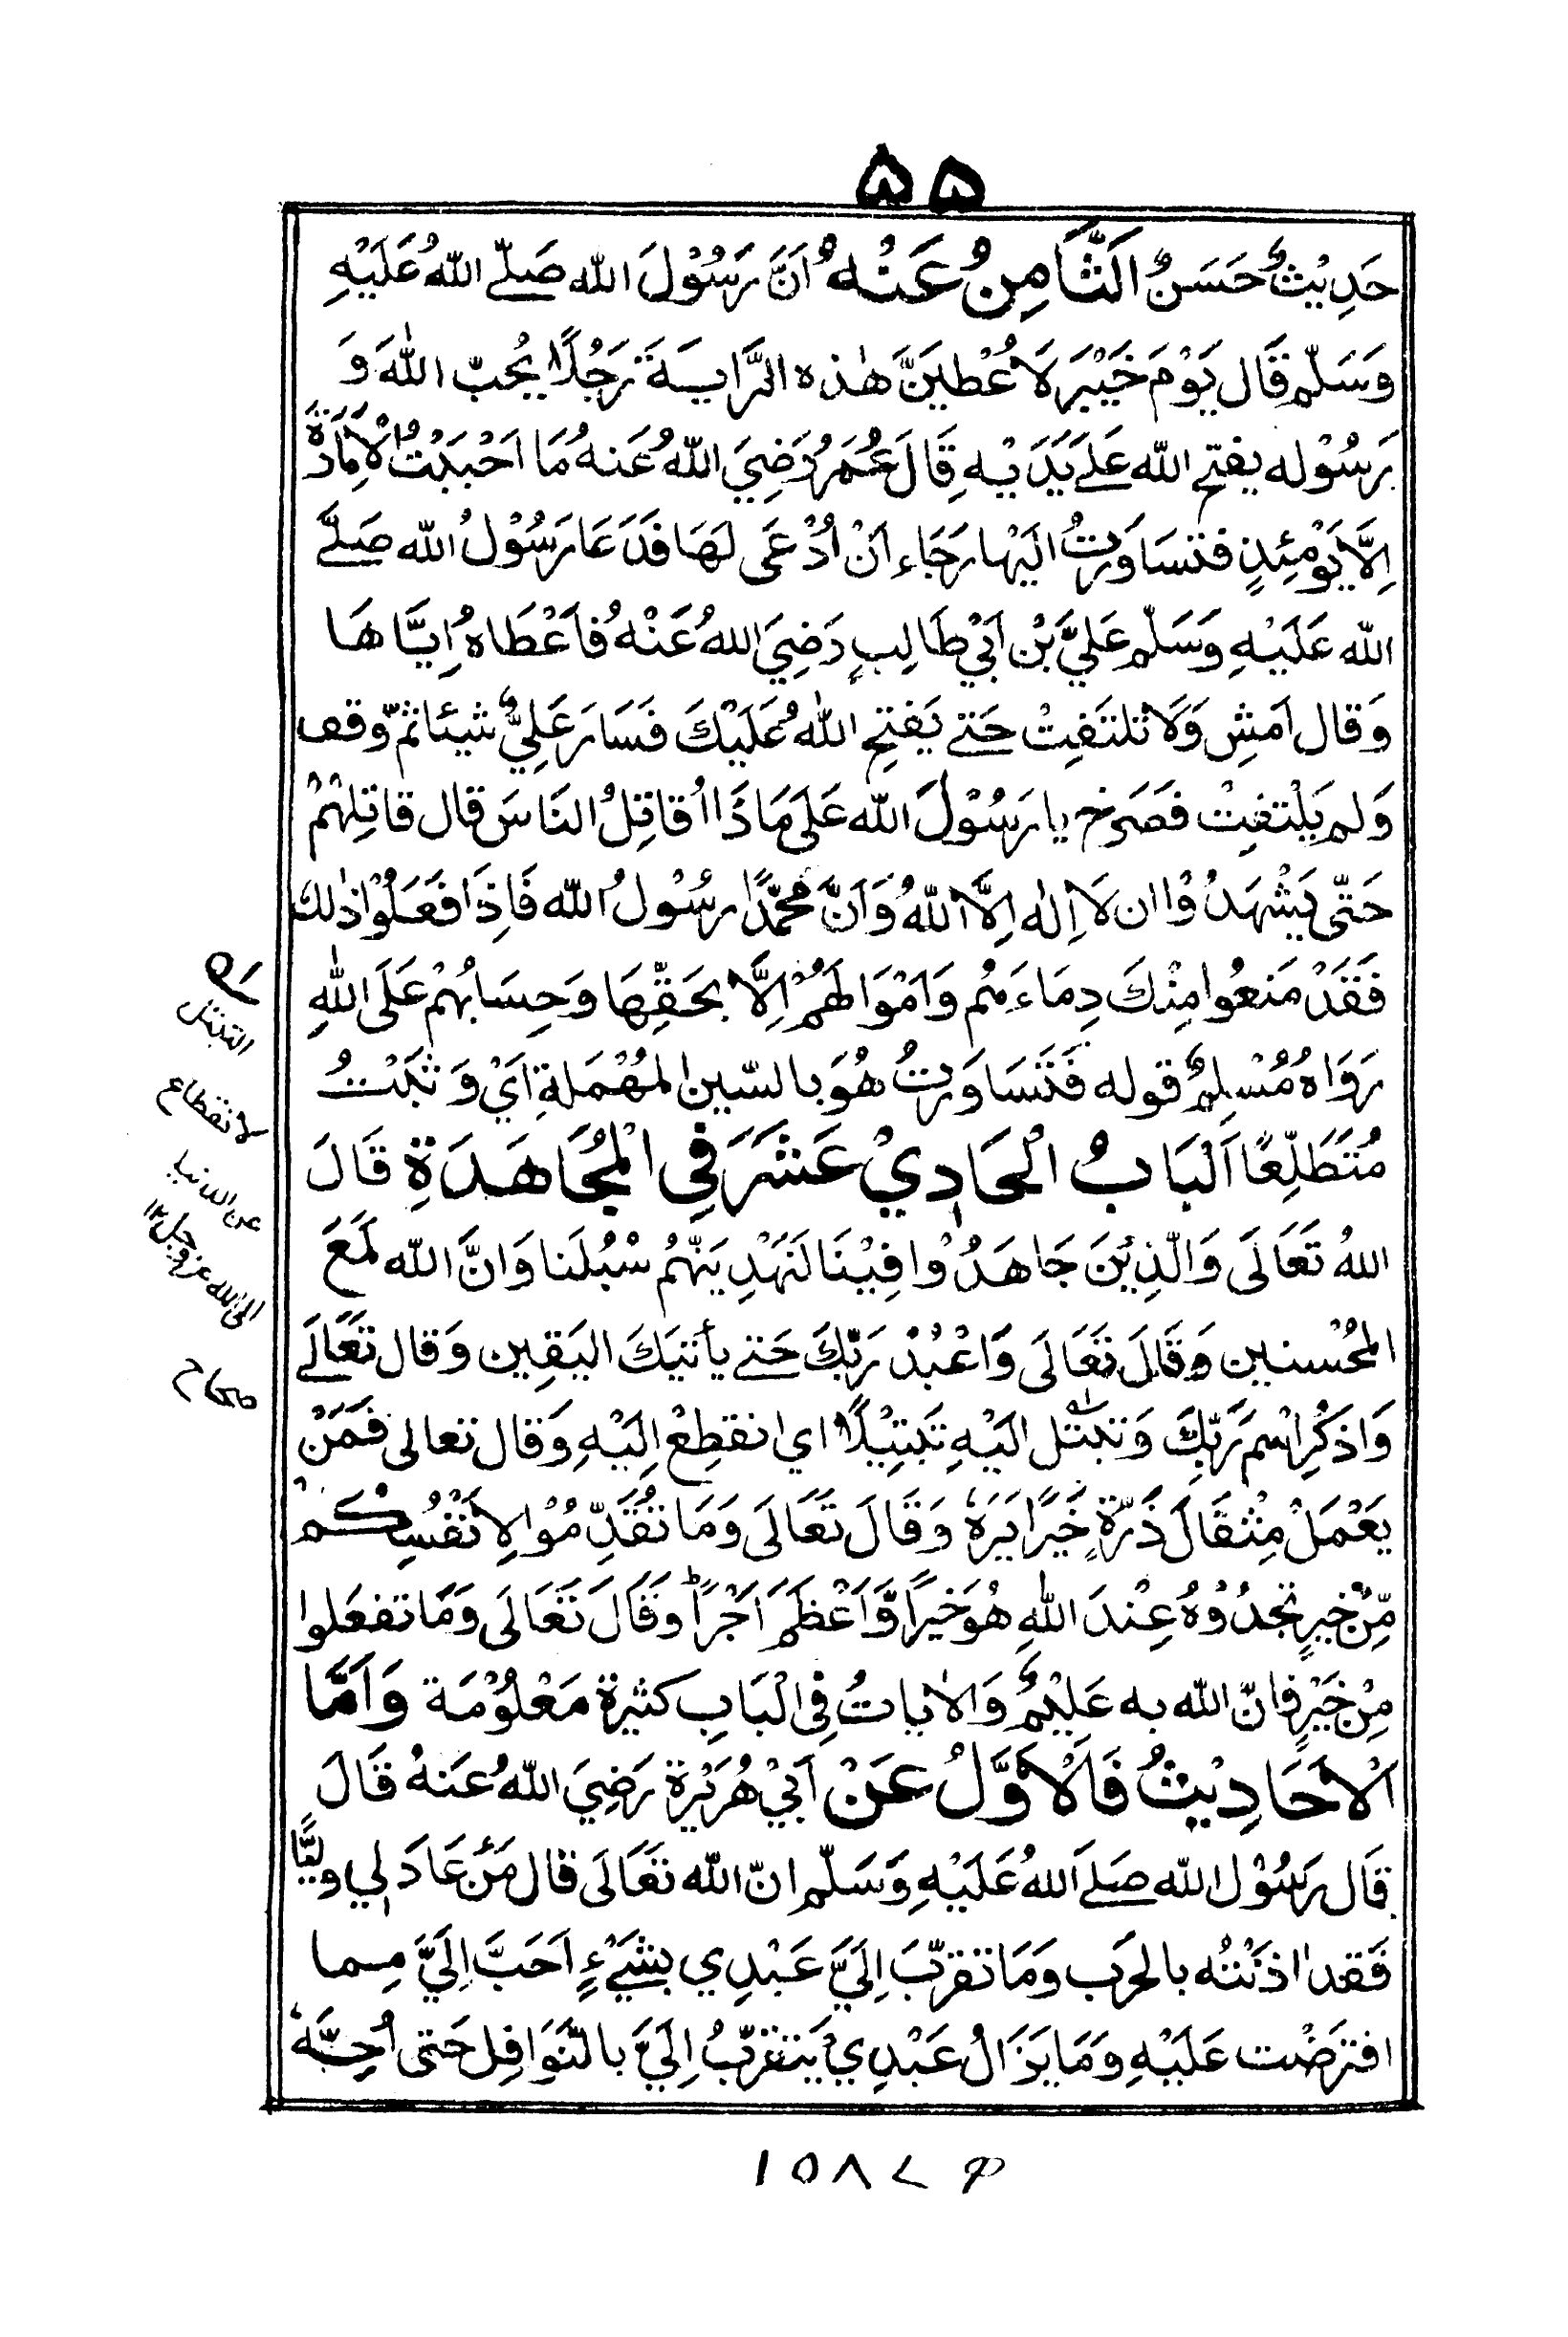 ۵۵
حَدِيْثٌ حَسَنٌ اَلثَّامِنُ عَنْهُ اَنَّ رَسُوْلَ الله صَلَّے اللهُ عَلَيْهِ
وَسَلّم قَال يَوْمَ خَيْبَرَ لَاُعْطِيَنَّ هٰذه الرَّايةَ رَجُلًا يُحبّ اللهَ وَ
رَسُوْله يفتح الله عَلَے يَدَيْه قَالَ عُمَرُ رَضِيَ اللهُ عَنهُ مَا اَحْبَبْتُ الْاِمَارَةَ
اِلَّا يَوْمَئِذٍ فتسَاوَرتُ اليْها رَجَاء اَنْ اُدْعَى لهَا فَدَعَا رَسُوْلُ الله صَلَّے
الله عَلَيْهِ وَسَلّم عَلِيَّ بْنَ اَبِيْ طَالِبٍ رَضِيَ اللهُ عَنْهُ فاَعْطَاهُ اِيَّاهَا
وَقال امَشِ وَلَا تلتَفِتْ حَتے يَفتحِ اللهُ عَلَيْكَ فَسَارَ عَلِيٌّ شيئا ثمّ وقف
وَلم يَلْتفِتْ فصَرخ يا رَسُوْلَ الله عَلَى مَاذَا اُقاتِلُ النَاسَ قال قاتِلهُمْ
حَتّى يَشْهَدُوْا ان لَا اِلٰه اِلَّا اللهُ وَاَنَّ محمّدًا رسُوْلُ الله فَاِذَا فعَلُوْا ذٰلك
فَقَدْ مَنَعُوا مِنْكَ دِمَاءَهُم وَاَمْوَالَهُمْ اِلَّا بحَقِّهَا وَحِسَابُهُمْ عَلَى اللهِ
رَوَاهُ مُسْلِمٌ قوله فَتَسَاوَرتُ هُوَ بالسّين المهْمَلةِ اَيْ وَثبْتُ
مُتَطَلِّعًا اَلْبَابُ الْحَادِيْ عَشَرَ فِي الْمُجَاهَدَةِ قَالَ
اللهُ تَعَالَى وَالّذِيْنَ جَاهَدُوْا فِيْنَا لَنَهْدِيَنّهُم سْبُلَنا وَانَّ الله لَمَعَ
المحْسنين وَقَالَ تَعَالَى وَاعْبُدْ رَبّكَ حَتے يأتيَكَ اليَقِين وَقال تَعَالَے
وَاذكُرِ اسْمَ رَبّكَ وَتبتّل اليْهِ تَبتِيْلًا اي انقطِعْ اِليْهِ وَقال تعالى فمَنْ
يَعْمَلْ مِثْقَالَ ذَرّةٍ خَيْرًا يَرَهٗ وَقَالَ تَعَالَى وَمَا تُقَدِّمُوْا لِاَنْفُسِكُمْ
مِّنْ خيرٍ تجدُوْهُ عِنْدَ اللهِ هُوَ خَيْرًا وَّاَعْظَمَ اَجْرًا وَقَالَ تَعَالَى وَمَا تفعَلوا
مِنْ خَيْرٍ فانّ الله به عَلِيْمٌ وَالاٰياتُ فِي الْبَابِ كثيرة مَعْلُوْمَة وَاَمَّا
الْاَحَادِيْثُ فَالْاَوَّلُ عَنْ اَبِيْ هُرَيْرة رَضِيَ اللهُ عَنهُ قَالَ
قَال رَسُوْل الله صَلَے اللهُ عَلَيْهِ وَسَلّم انّ الله تعَالَى قال مَنْ عَادَ لِي وليًّا
فَقد اٰذَنْتُه بالحرَب وَمَا تقرّبَ اِلَيَّ عَبْدِي بشَيْءٍ اَحَبَّ اِلَيَّ مِما
افترَضْت عَلَيْهِ وَمَا يَزَالُ عَبْدِيْ يَتقرّبُ اِلَيَّ بالنَّوَافِل حَتى اُحِبَّهٗ
التبتل
لانقطاع
عن الدنيا
الى الله عز وجل ١٢
۱۵۸۷